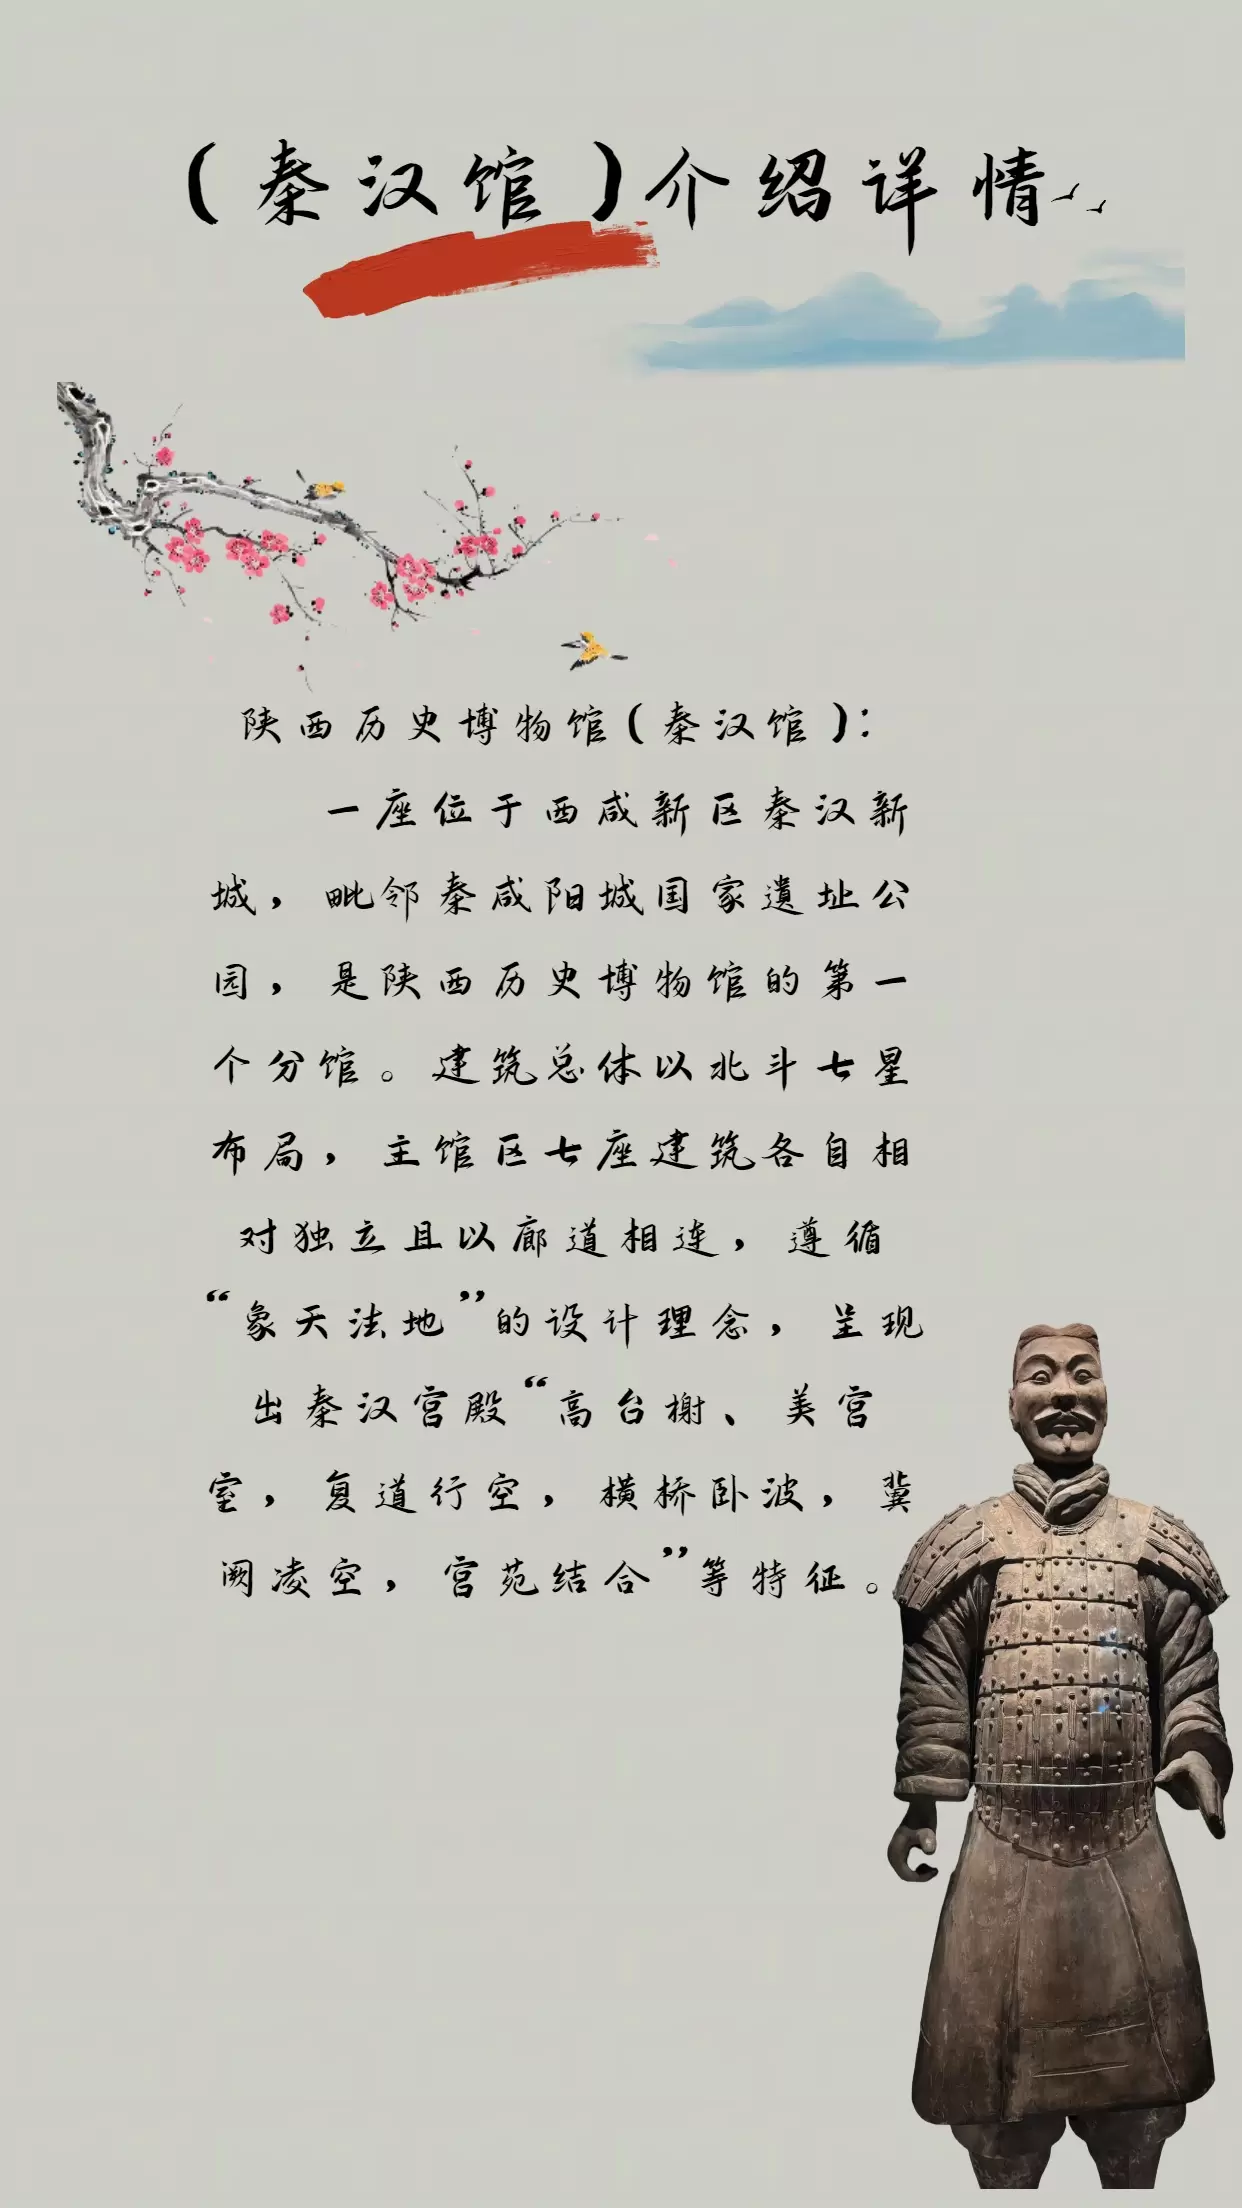 (秦汉馆)介绍详情
陕西历史博物馆(秦汉馆):
一座位于西咸新区秦汉新
城,毗邻秦咸阳城国家遗址公
园,是陕西历史博物馆的第一
个分馆。建筑总体以北斗七星
布局,主馆区七座建筑各自相
对独立且以廊道相连,遵循
“象天法地”的设计理念,呈现
出秦汉宫殿“高台榭、美宫
室,复道行空,横桥卧波,冀
阙凌空,宫苑结合”等特征。